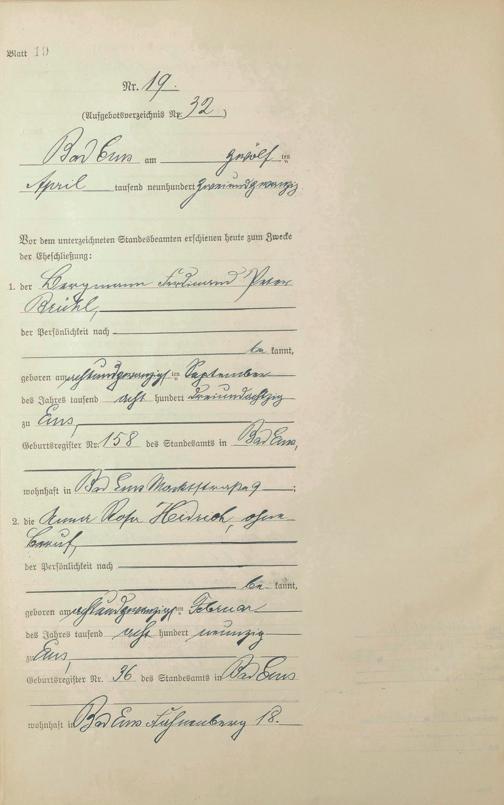 Blatt 19
Nr. 19.
(Aufgebotsverzeichnis Nr. 32)
Bad Ems am zwölf ten
April tausend neunhundert zweiundzwanzig
Vor dem unterzeichneten Standesbeamten erschienen heute zum Zwecke
der Eheschließung:
1. der Bergmann Ferdinand Peter
der Persönlichkeit nach
be kannt,
geboren am achtundzwanzigs ten September
des Jahres tausend acht hundert dreiundachtzig
zu Ems,
Geburtsregister Nr. 158 des Standesamts in Bad Ems,
wohnhaft in Bad Ems Marktstraße 9 ;
2. die Anna Rosa Heidrich, ohne
Beruf,
der Persönlichkeit nach
be kannt,
geboren am achtundzwanzigs ten Februar
des Jahres tausend acht hundert neunzig
zu Ems,
Geburtsregister Nr. 36 des Standesamts in Bad Ems
wohnhaft in Bad Ems 18.